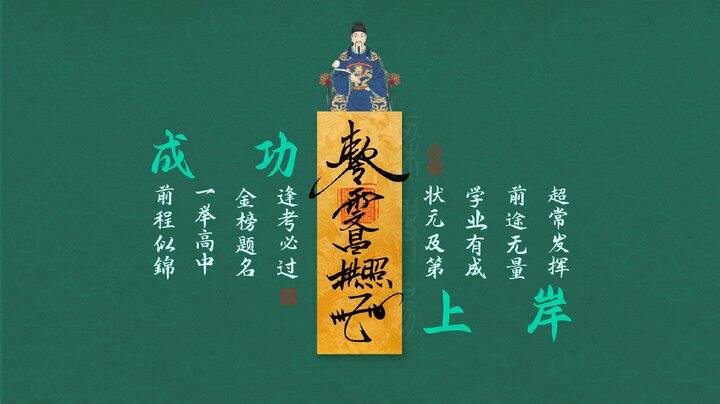 成功
前程似錦
一举高中
金榜题名
逢考必过
文昌拱照
状元及第
学业有成
前途无量
超常发挥
上岸